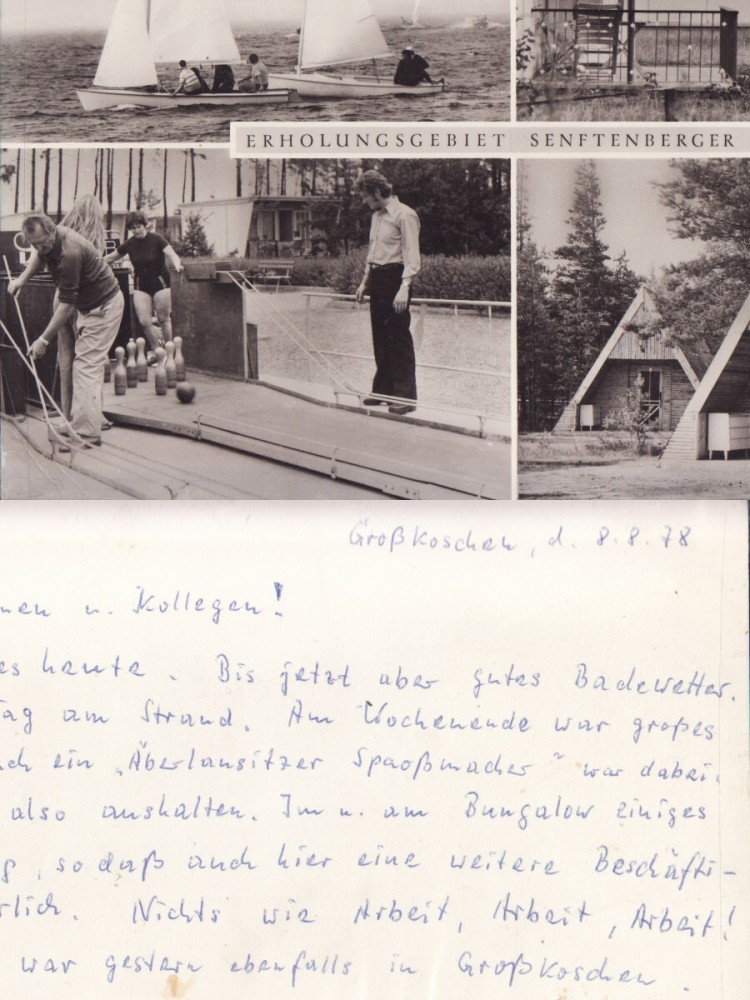 ERHOLUNGSGEBIET SENFTENBERGER
Großkoschen, d. 8.8.78
nen u. Kollegen!
es heute. Bis jetzt aber gutes Badewetter.
Tag am Strand. Am Wochenende war großes
ch ein „Äberlausitzer Spaoßmacher" war dabei.
also aushalten. Im u. am Bungalow einiges
g, sodaß auch hier eine weitere Beschäfti-
rlich. Nichts wie Arbeit, Arbeit, Arbeit!
war gestern ebenfalls in Großkoschen.